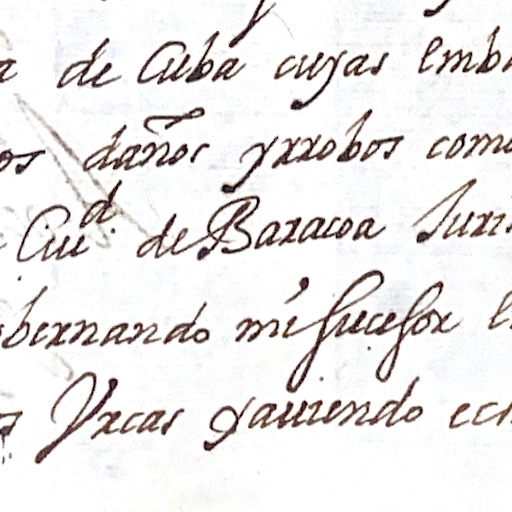 a de Cuba cuyas emba
os daños yrrobos come
Ciud de Baracoa Juris
bernando mi sucesor e
Urcas yauiendo ech